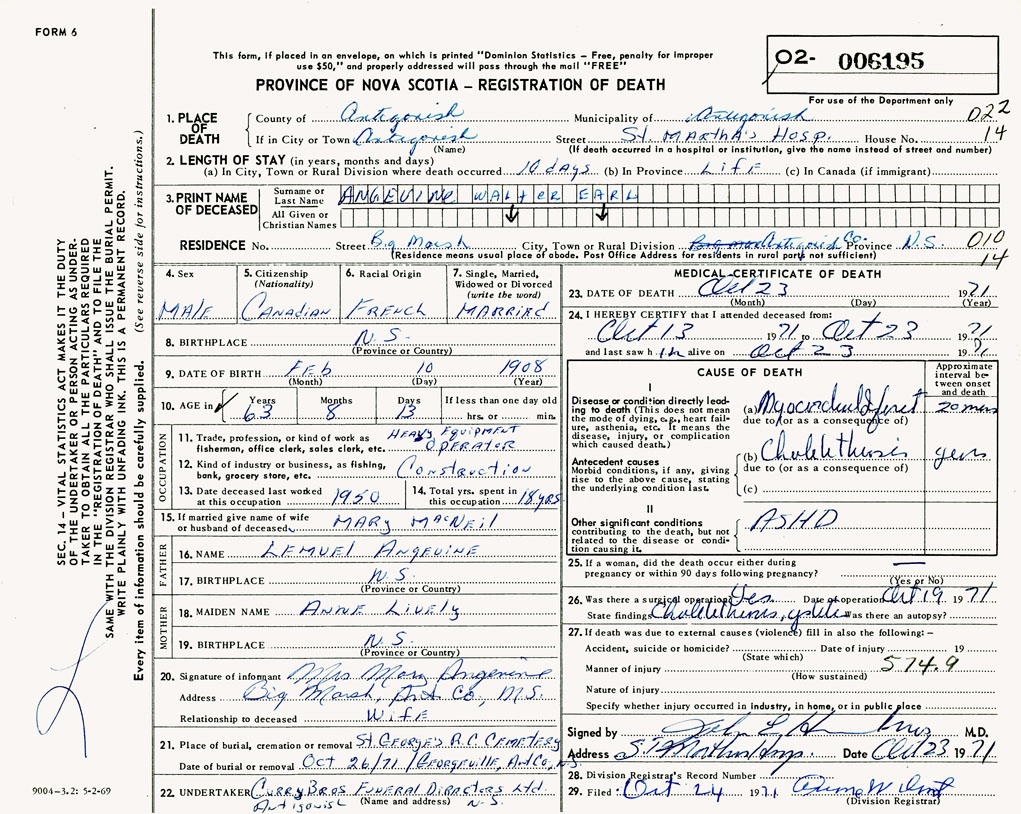 FORM 6
This form, if placed in an envelope, on which is printed "Dominion Statistics – Free, penalty for improper
use $50," and properly addressed will pass through the mail "FREE"
O2- 006195
For use of the Department only
PROVINCE OF NOVA SCOTIA – REGISTRATION OF DEATH
1. PLACE OF DEATH
County of Antigonish Municipality of Antigonish 022
If in City or Town Antigonish Street St. Martha's Hosp. House No. 14
(Name) (If death occurred in a hospital or institution, give the name instead of street and number)
2. LENGTH OF STAY (in years, months and days)
(a) In City, Town or Rural Division where death occurred 10 days (b) In Province Life (c) In Canada (if immigrant)
3. PRINT NAME OF DECEASED
Surname or Last Name ANGEVINE WALTER EARL
All Given or Christian Names
RESIDENCE No. Street Big Marsh City, Town or Rural Division Antigonish Co. Province N.S. 010
(Residence means usual place of abode. Post Office Address for residents in rural parts not sufficient) 14
4. Sex
MALE
5. Citizenship (Nationality)
CANADIAN
6. Racial Origin
FRENCH
7. Single, Married, Widowed or Divorced (write the word)
MARRIED
8. BIRTHPLACE N.S.
(Province or Country)
9. DATE OF BIRTH Feb 10 1908
(Month) (Day) (Year)
10. AGE in Years Months Days If less than one day old
63 8 13 hrs. or min.
OCCUPATION
11. Trade, profession, or kind of work as fisherman, office clerk, sales clerk, etc. HEAVY EQUIPMENT OPERATOR
12. Kind of industry or business, as fishing, bank, grocery store, etc. CONSTRUCTION
13. Date deceased last worked at this occupation 1950
14. Total yrs. spent in this occupation 18 yrs
15. If married give name of wife or husband of deceased MARY MACNEIL
FATHER
16. NAME LEMUEL ANGEVINE
17. BIRTHPLACE N.S.
(Province or Country)
MOTHER
18. MAIDEN NAME ANNE LIVELY
19. BIRTHPLACE N.S.
(Province or Country)
20. Signature of informant Mrs Mary Angevine
Address Big Marsh, Ant Co, N.S.
Relationship to deceased WIFE
21. Place of burial, cremation or removal ST GEORGE'S R.C. CEMETERY
Date of burial or removal Oct 26/71 / Georgeville, Ant Co, N.S.
22. UNDERTAKER CURRY BROS FUNERAL DIRECTORS Ltd.
(Name and address) Antigonish N.S.
MEDICAL CERTIFICATE OF DEATH
23. DATE OF DEATH Oct 23 1971
(Month) (Day) (Year)
24. I HEREBY CERTIFY that I attended deceased from:
Oct 13 1971 to Oct 23 1971
and last saw him alive on Oct 23 1971
CAUSE OF DEATH
Approximate interval between onset and death
I
Disease or condition directly leading to death (This does not mean the mode of dying, e.g., heart failure, asthenia, etc. It means the disease, injury, or complication which caused death.)
(a) Myocardial Infarct 20 mins
due to (or as a consequence of)
Antecedent causes
Morbid conditions, if any, giving rise to the above cause, stating the underlying condition last.
(b) Cholelithiasis years
due to (or as a consequence of)
(c)
II
Other significant conditions contributing to the death, but not related to the disease or condition causing it.
ASHD
25. If a woman, did the death occur either during
pregnancy or within 90 days following pregnancy? —
(Yes or No)
26. Was there a surgical operation? Yes Date of operation Oct 19 1971
State findings Cholelithiasis, Was there an autopsy?
27. If death was due to external causes (violence) fill in also the following: –
Accident, suicide or homicide? Date of injury 19
(State which)
Manner of injury 574.9
(How sustained)
Nature of injury
Specify whether injury occurred in industry, in home, or in public place
Signed by M.D.
Address St. Marthas Hosp. Date Oct 23 1971
28. Division Registrar's Record Number
29. Filed: Oct 24 1971
(Division Registrar)
SEC. 14 – VITAL STATISTICS ACT MAKES IT THE DUTY
OF THE UNDERTAKER OR PERSON ACTING AS UNDERTAKER
TO OBTAIN ALL THE PARTICULARS REQUIRED
IN THE "REGISTRATION OF DEATH" AND TO FILE THE
SAME WITH THE DIVISION REGISTRAR WHO SHALL ISSUE THE BURIAL PERMIT.
WRITE PLAINLY WITH UNFADING INK. THIS IS A PERMANENT RECORD.
Every item of information should be carefully supplied. (See reverse side for instructions.)
9004-3.2: 5-2-69